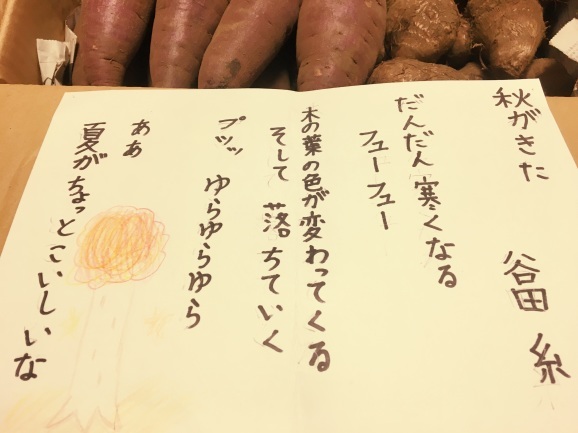 秋がきた　谷田 糸
だんだん寒くなる
フューフュー
木の葉の色が変わってくる
そして 落ちていく
プツッ ゆらゆらゆら
ああ
夏がちょっとこいしいな